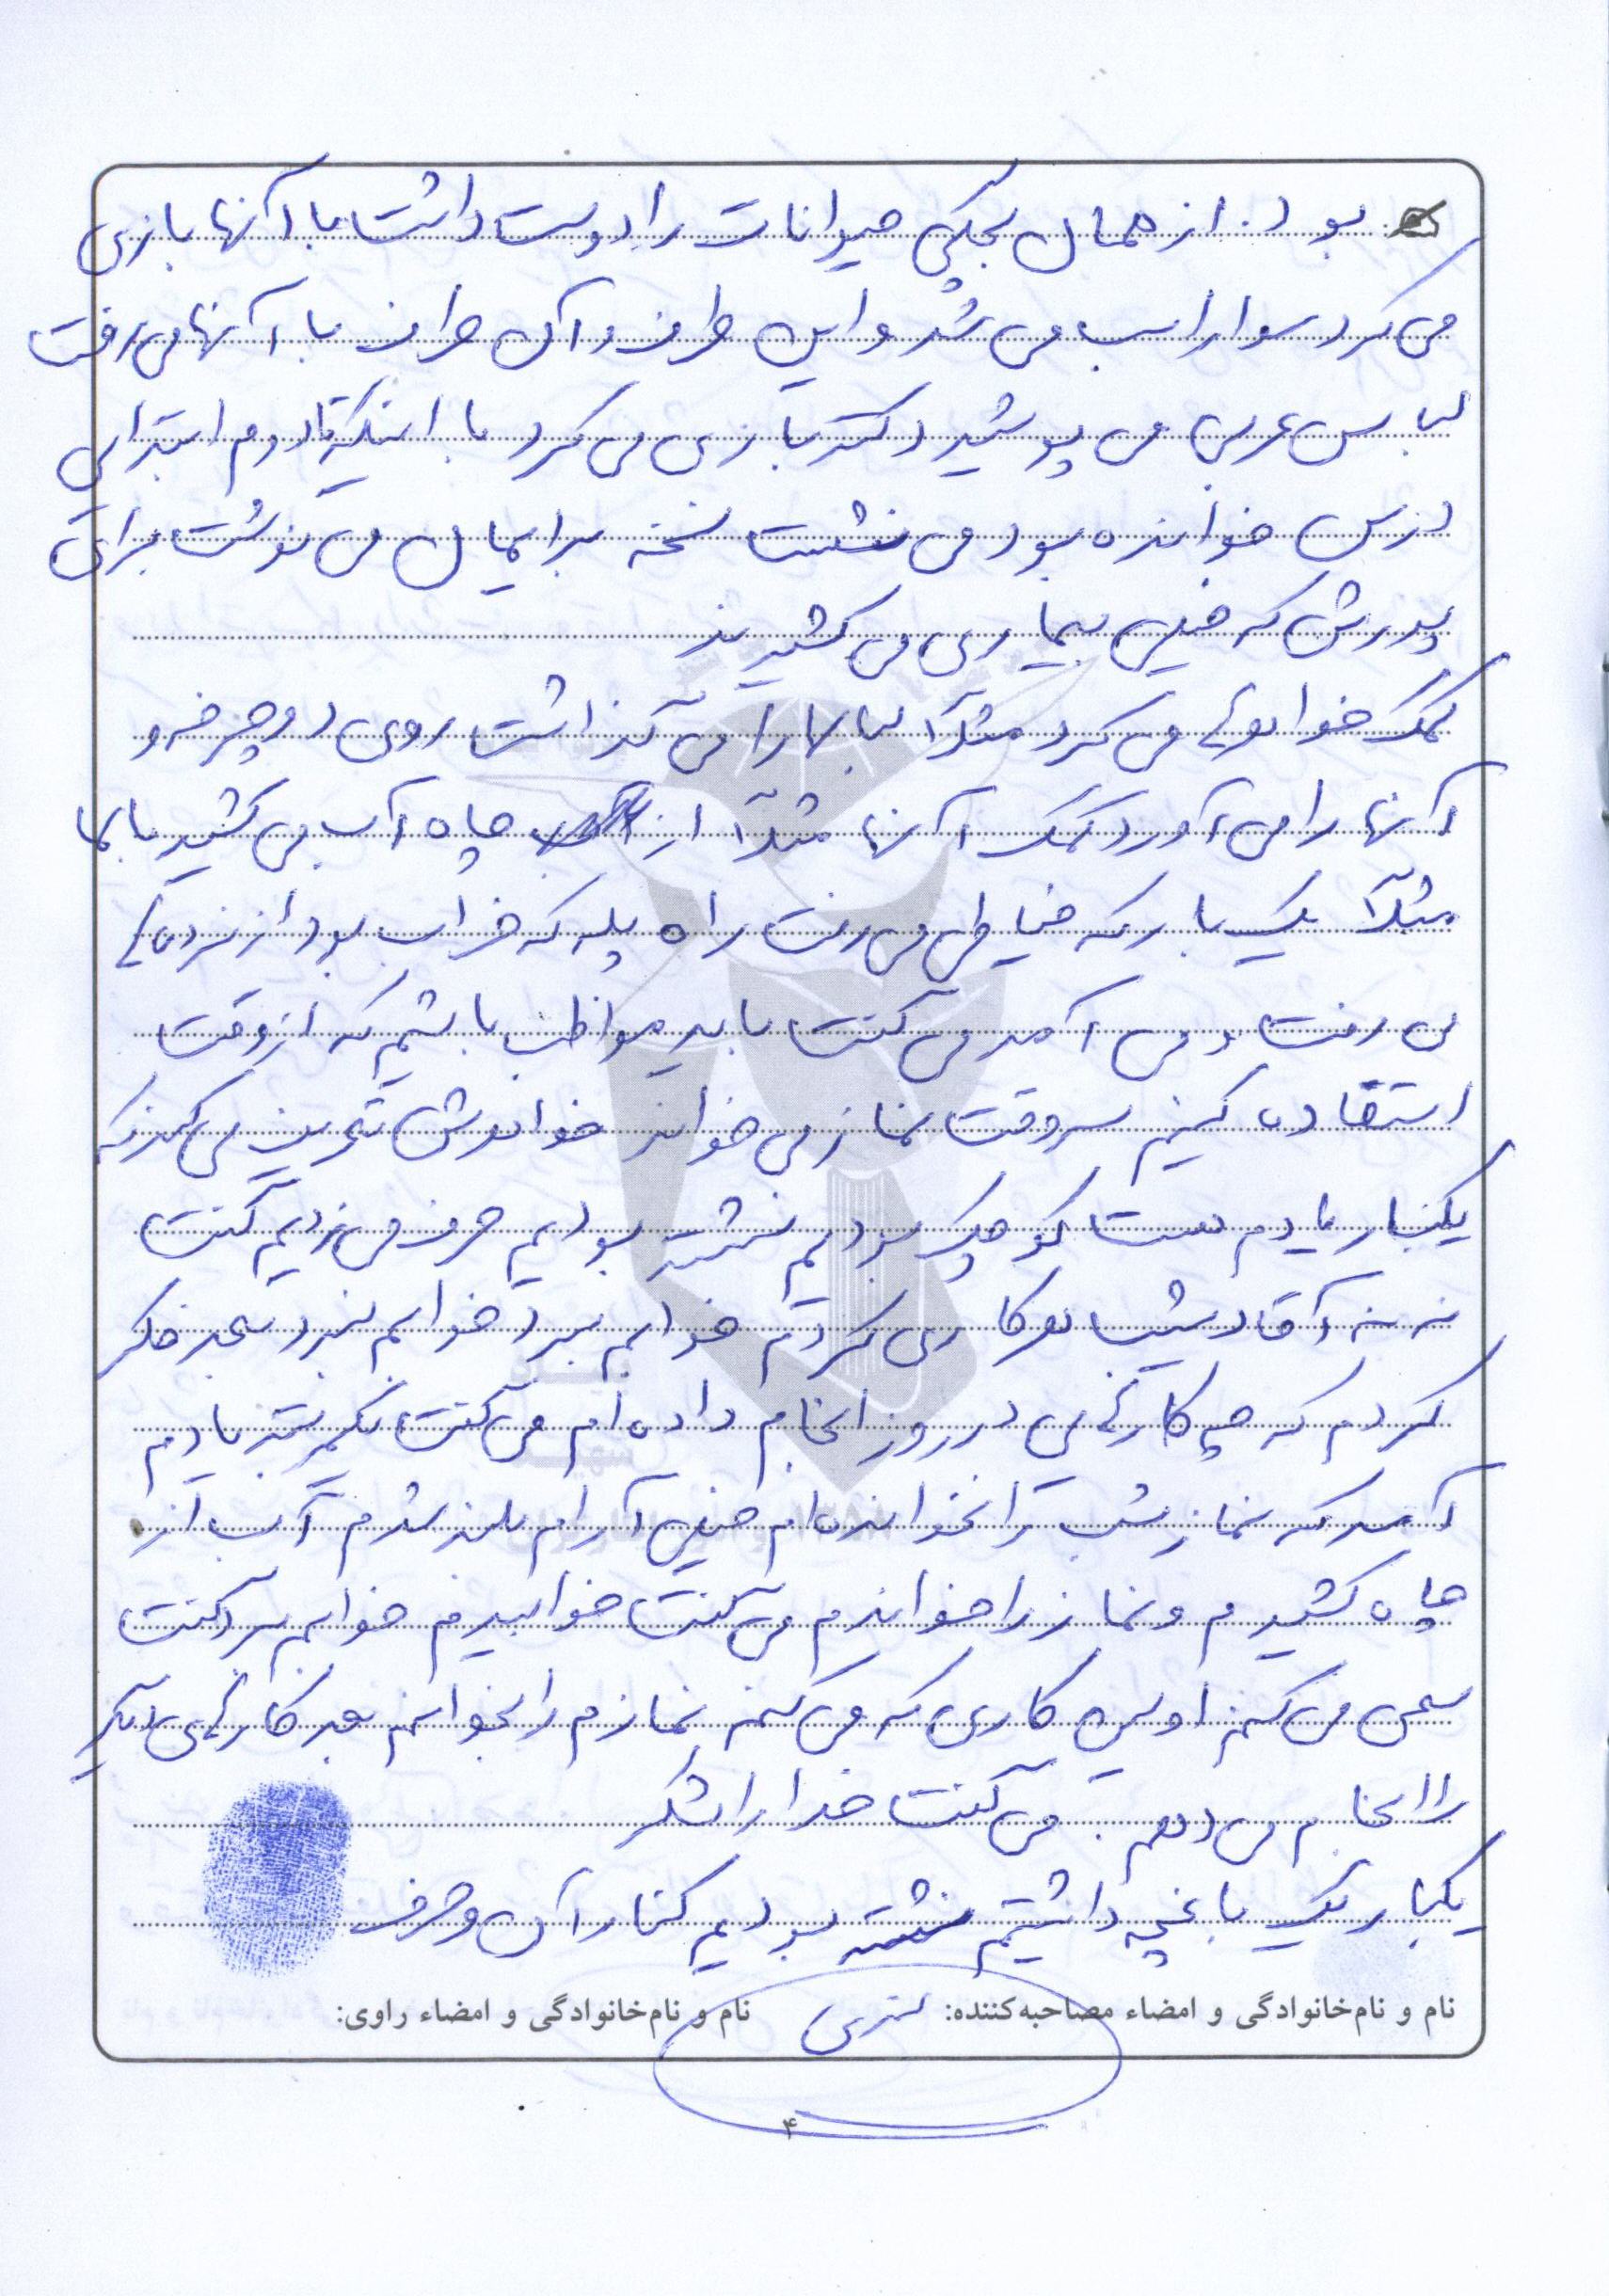 بود. از همان بچگی حیوانات را دوست داشت با آنها بازی
می کرد سوار اسب می شد و این طرف و آن طرف با آنها می رفت
لباس عربی می پوشید دکتر بازی می کرد با اینکه تا دوم ابتدایی
درس خوانده بود می نشست نسخه برایمان می نوشت برای
پدرش که خیلی بیماری می کشیدند
کمک خواهر می کرد مثلاً را می گذاشت روی دوچرخه و
آنها را می آورد کمک آنها مثلاً از چاه آب می کشید
مثلاً یک بار که خیاطی می رفت راه پله که خراب بود از نرده
می رفت و می آمد می گفت باید مواظب باشیم که از وقت
استفاده کنیم سر وقت نماز می خواند خواهرش تعریف می کند که
یکبار یادم هست کوچک بودیم نشسته بودیم حرف می زدیم گفت
نه نه آقا دیشب هر کاری کردم خوابم ببرد خوابم نبرد بعد فکر
کردم که چه کارهایی در روز انجام داده ام می گفت یکمرتبه یادم
آمد که نماز شب را نخوانده ام خیلی آرام بلند شدم آب از
چاه کشیدم و نماز را خواندم می گفت خوابیدم خوابم برد گفت
سعی می کنم اولین کاری که می کنم نمازم را بخوانم بعد کارهای دیگر
را انجام می دهم. می گفت خدا را شکر
یکبار یک باغچه داشتیم نشسته بودیم کنار آن و حرف
نام و نام‌خانوادگی و امضاء مصاحبه‌کننده: نام و نام‌خانوادگی و امضاء راوی:
۴